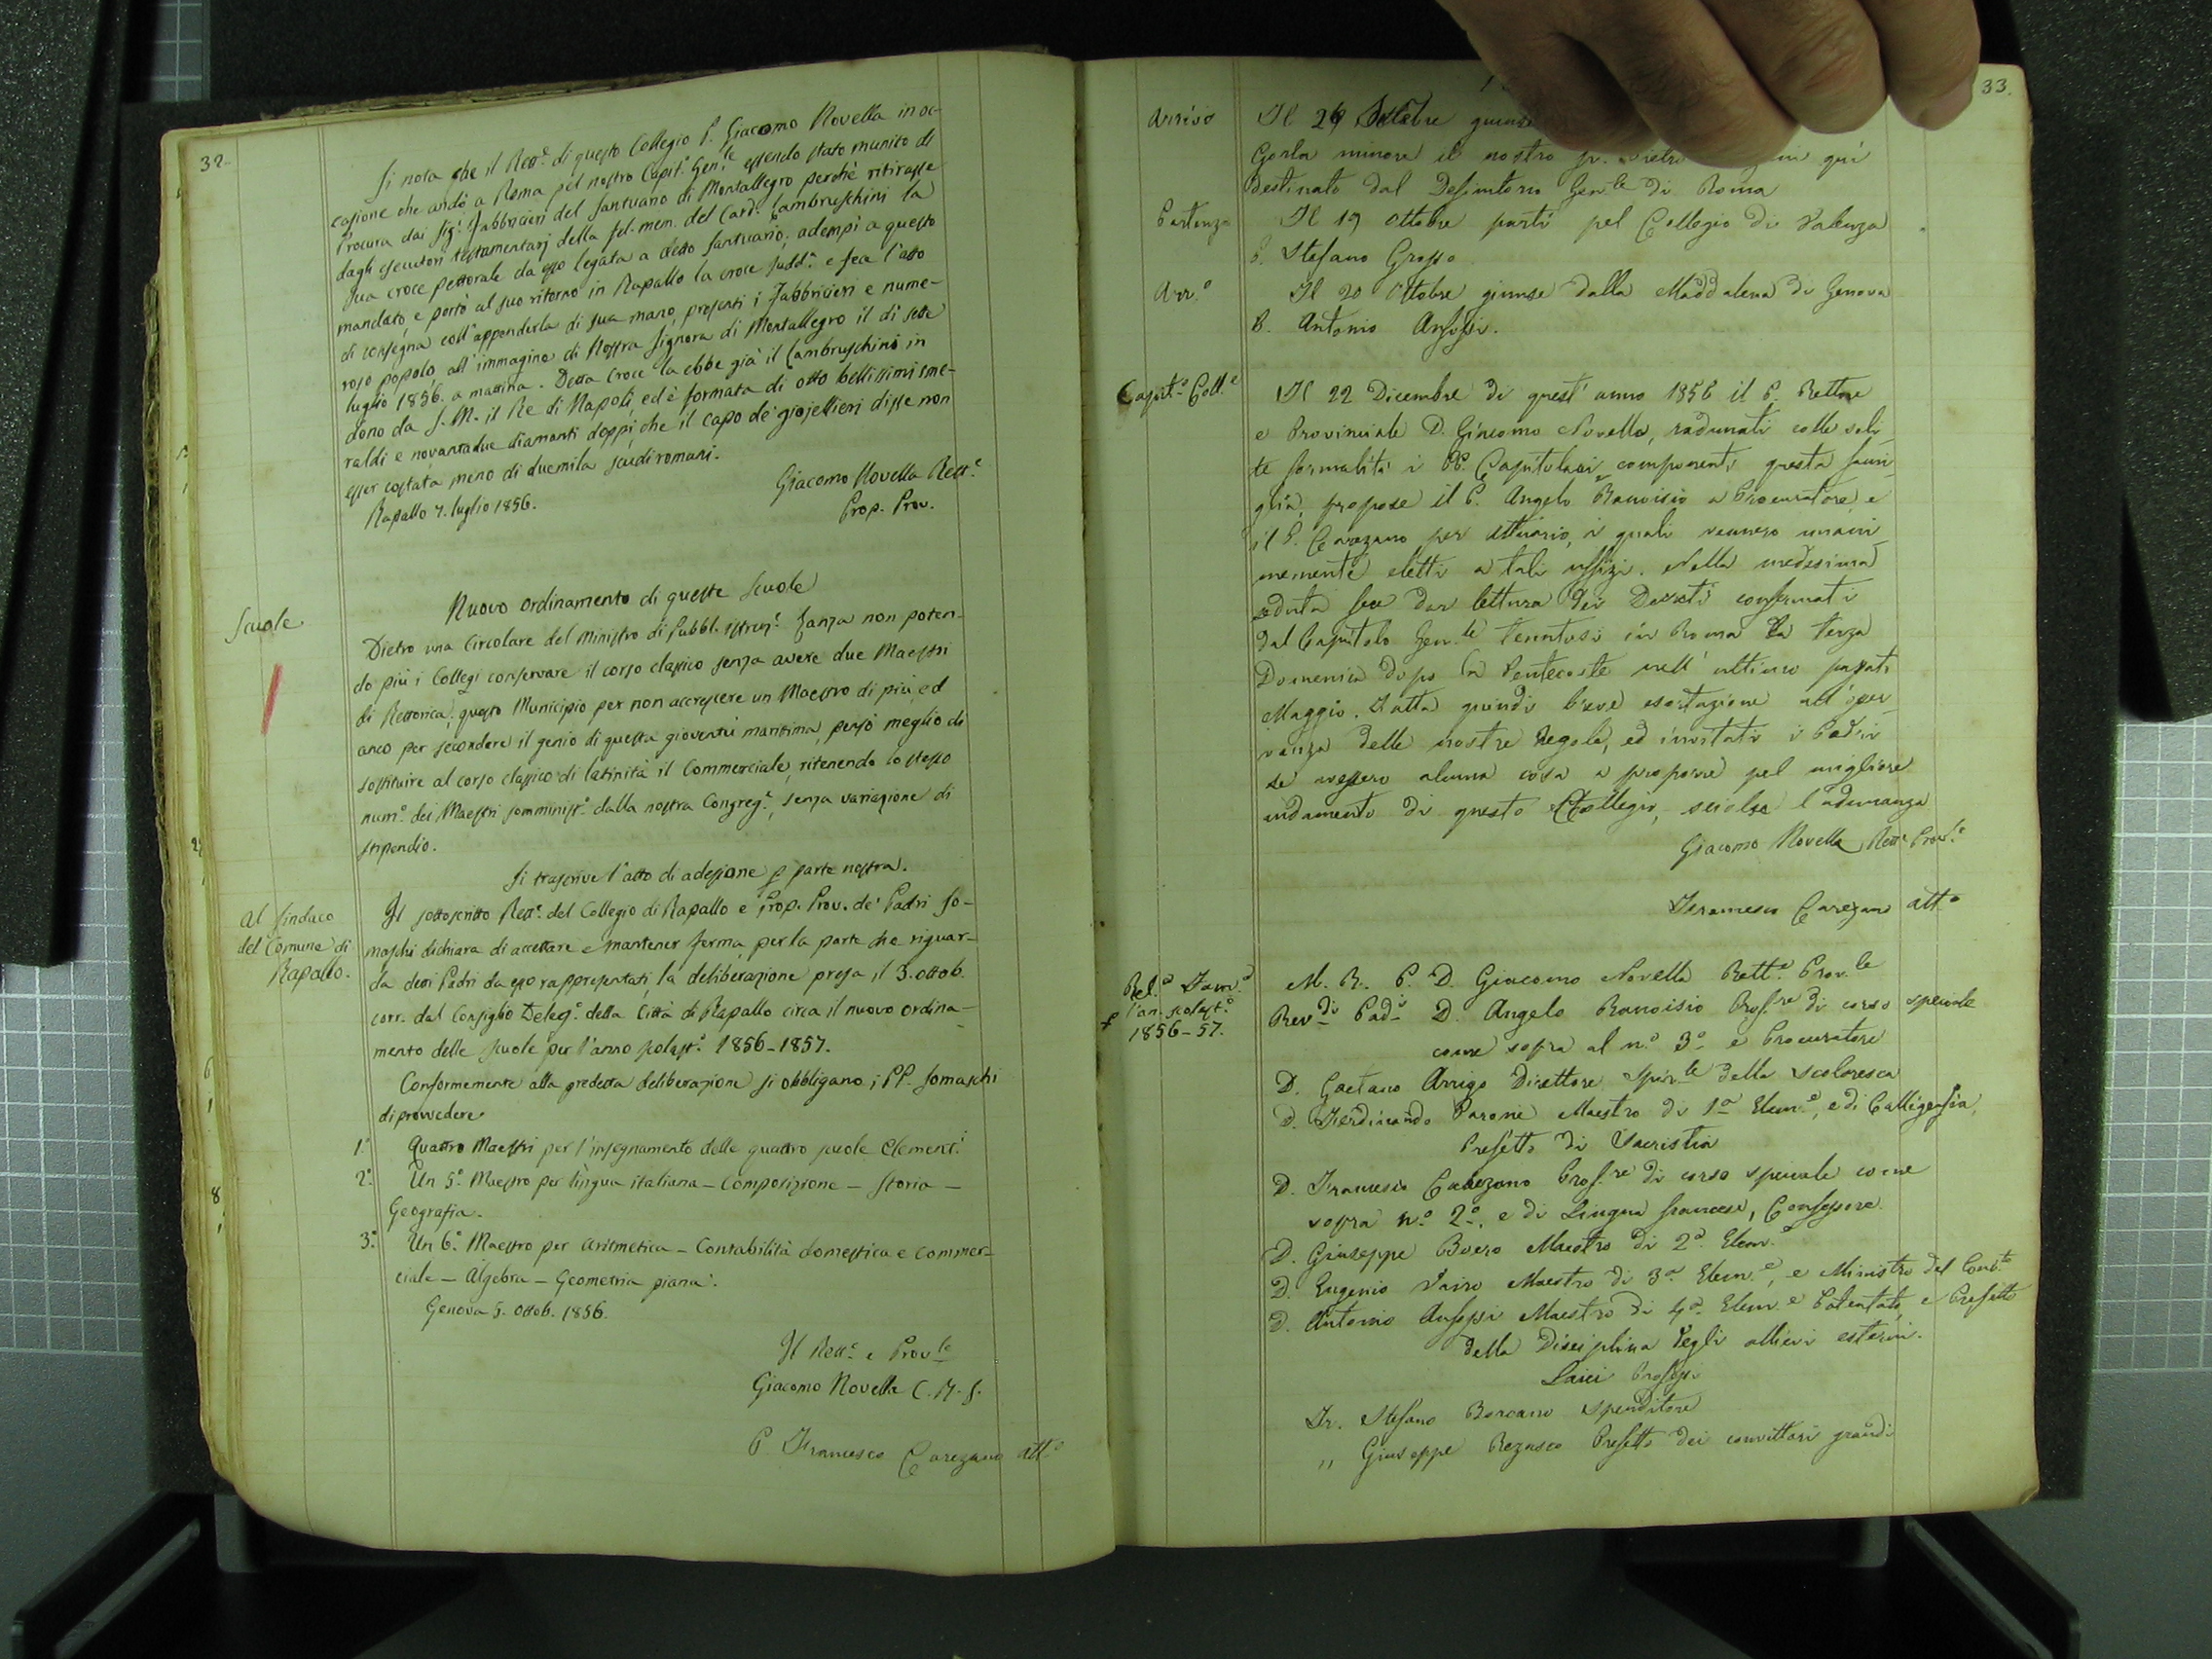 32.
Si nota che il Rett.e di questo Collegio P. Giacomo Novella in oc-
casione che andò a Roma pel nostro Capit.o Gen.le essendo stato munito di
Procura dai Sig.i Fabbricieri del Santuario di Montallegro perchè ritirasse
dagli esecutori testamentarj della fel. mem. del Card. Lambruschini la
sua croce pettorale da esso legata a detto Santuario, adempì a questo
mandato, e portò al suo ritorno in Rapallo la croce sudd.a e fece l'atto
di consegna coll'appenderla di sua mano, presenti i Fabbricieri e nume-
roso popolo, all'immagine di Nostra Signora di Montallegro il dì sette
luglio 1856. a mattina. Detta Croce la ebbe già il Lambruschini in
dono da S. M. il Re di Napoli, ed è formata di otto bellissimi sme-
raldi e novantadue diamanti doppi, che il capo de' giojellieri disse non
esser costata meno di duemila scudi romani.
Rapallo 7. luglio 1856.
Giacomo Novella Rett.e
Prep. Prov.
Scuole
Nuovo ordinamento di queste Scuole
Dietro una Circolare del Ministro di Pubbl. istruz.e Lanza non poten-
do più i Collegi conservare il corso classico senza avere due Maestri
di Rettorica, questo Municipio per non accrescere un Maestro di più, ed
anco per secondare il genio di questa gioventù marittima, pensò meglio di
sostituire al corso classico di latinità il Commerciale, ritenendo lo stesso
num.o dei Maestri somminist.i dalla nostra Congreg.e, senza variazione di
stipendio.
Si trascrive l'atto di adesione p parte nostra.
Al Sindaco
del Comune di
Rapallo.
Il sottoscritto Rett.e del Collegio di Rapallo e Prep. Prov. de' Padri So-
maschi dichiara di accettare e mantener ferma, per la parte che riguar-
da detti Padri da esso rappresentati, la deliberazione presa il 3. ottob.
corr. dal Consiglio Deleg.o della Città di Rapallo circa il nuovo ordina-
mento delle scuole per l'anno scolast.o 1856-1857.
Conformemente alla predetta deliberazione si obbligano i PP. Somaschi
di provvedere
1.o Quattro Maestri per l'insegnamento delle quattro scuole Element.i
2.o Un 5.o Maestro per lingua italiana - Composizione - Storia -
Geografia.
3.o Un 6.o Maestro per Aritmetica - Contabilità domestica e commer-
ciale - Algebra - Geometria piana.
Genova 5. Ottob. 1856.
Il Rett.e e Prov.le
Giacomo Novella C. R. S.
P Francesco Carezano att.o
33.
Arrivo
Il 26 giunse
Gorla minore il nostro p. quì
destinato dal Definitorio Gen.le di Roma
Partenza
Il 19 Ottobre partì pel Collegio di Valenza
P. Stefano Grosso
Arr.o
Il 20 Ottobre giunse dalla Maddalena di Genova
P. Antonio Anfossi.
Capit.o Coll.e
Il 22 Dicembre di quest'anno 1856 il P. Rettore
e Provinciale D. Giacomo Novella, radunati colle soli-
te formalità i PP. Capitolari componenti questa fami-
glia, propose il P. Angelo Bauoisio a Procuratore, e
il P. Carezano per Attuario, i quali vennero unani-
memente eletti a tali uffizi. Nella medesima
seduta fece dar lettura dei Decreti confermati
dal Capitolo Gen.le tenutosi in Roma la terza
Domenica dopo la Pentecoste nell'ultimo passato
Maggio. Fatta quindi breve esortazione all'osser-
vanza delle nostre Regole, ed invitati i Padri
se avessero alcuna cosa a proporre pel migliore
andamento di questo Collegio, sciolse l'adunanza
Giacomo Novella Rett.e Prov.le
Francesco Carezano att.o
Rel.e Fam.a
p l'an. scolast.o
1856-57.
M. R. P. D. Giacomo Novella Rett.e Prov.le
Rev.di Pad.i D. Angelo Bauoisio Prof.re di corso speciale
come sopra al n.o 3.o e Procuratore
D. Gaetano Arrigo Direttore Spir.le della scolaresca
D. Ferdinando Parone Maestro di 1.a Elem.e, e di Calligrafia,
Prefetto di Sacristia
D. Francesco Carezano Prof.re di corso speciale come
sopra n.o 2.o, e di Lingua francese, Confessore.
D. Giuseppe Boero Maestro di 2.a Elem.e
D. Eugenio Vairo Maestro di 3.a Elem.e, e Ministro del Conv.to
D. Antonio Anfossi Maestro di 4.a Elem.e Patentato, e Prefetto
della Disciplina degli allievi esterni.
Laici Professi
Fr. Stefano Borcano Spenditore
,, Giuseppe Rezasco Prefetto dei convittori grandi